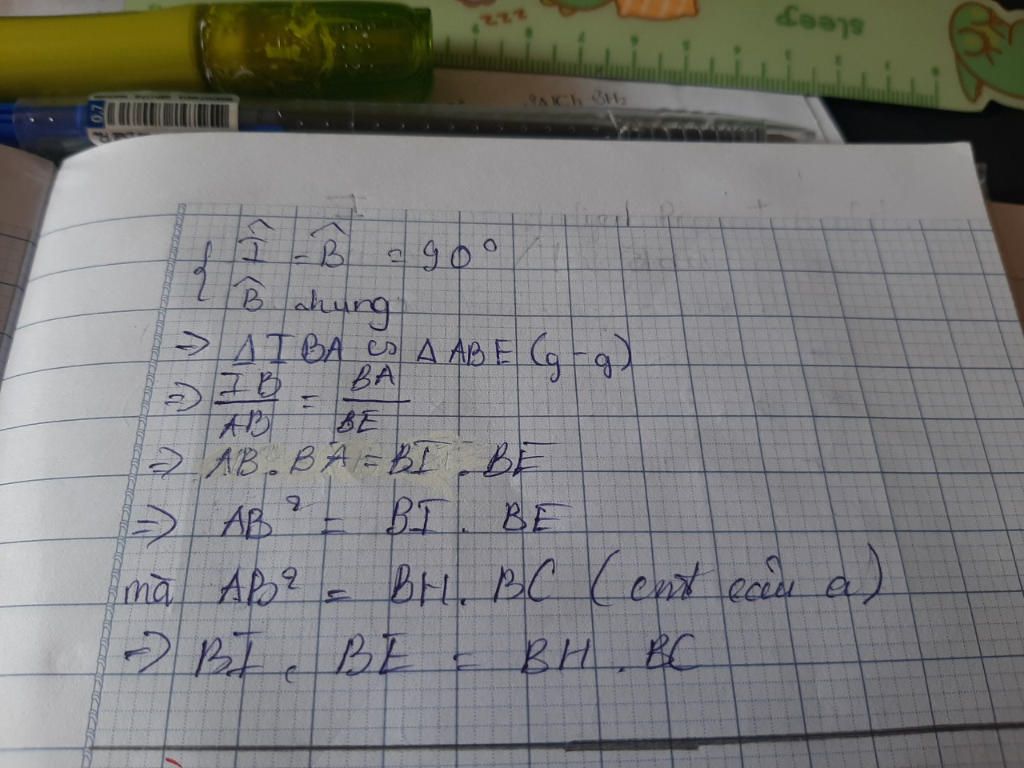 zzz
sleep
0.7
{ Î = B̂ = 90°
B̂ chung
=> Δ IBA ∽ Δ ABE (g-g)
=> IB/AB = BA/BE
=> AB . BA = BI . BE
=> AB² = BI . BE
mà AB² = BH . BC (cmt câu a)
=> BI . BE = BH . BC